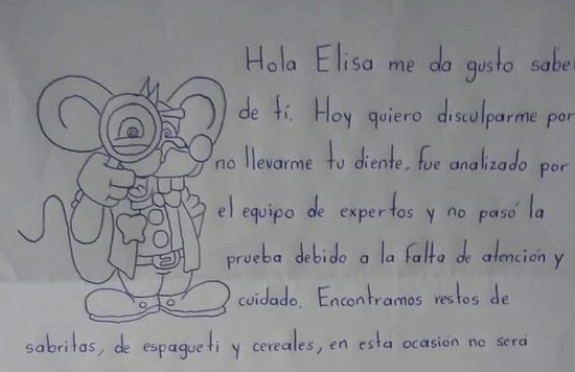 Hola Elisa me da gusto sabe
de ti. Hoy quiero disculparme por
no llevarme tu diente, fue analizado por
el equipo de expertos y no pasó la
prueba debido a la falta de atención y
cuidado. Encontramos restos de
sabritas, de espagueti y cereales, en esta ocasión no será